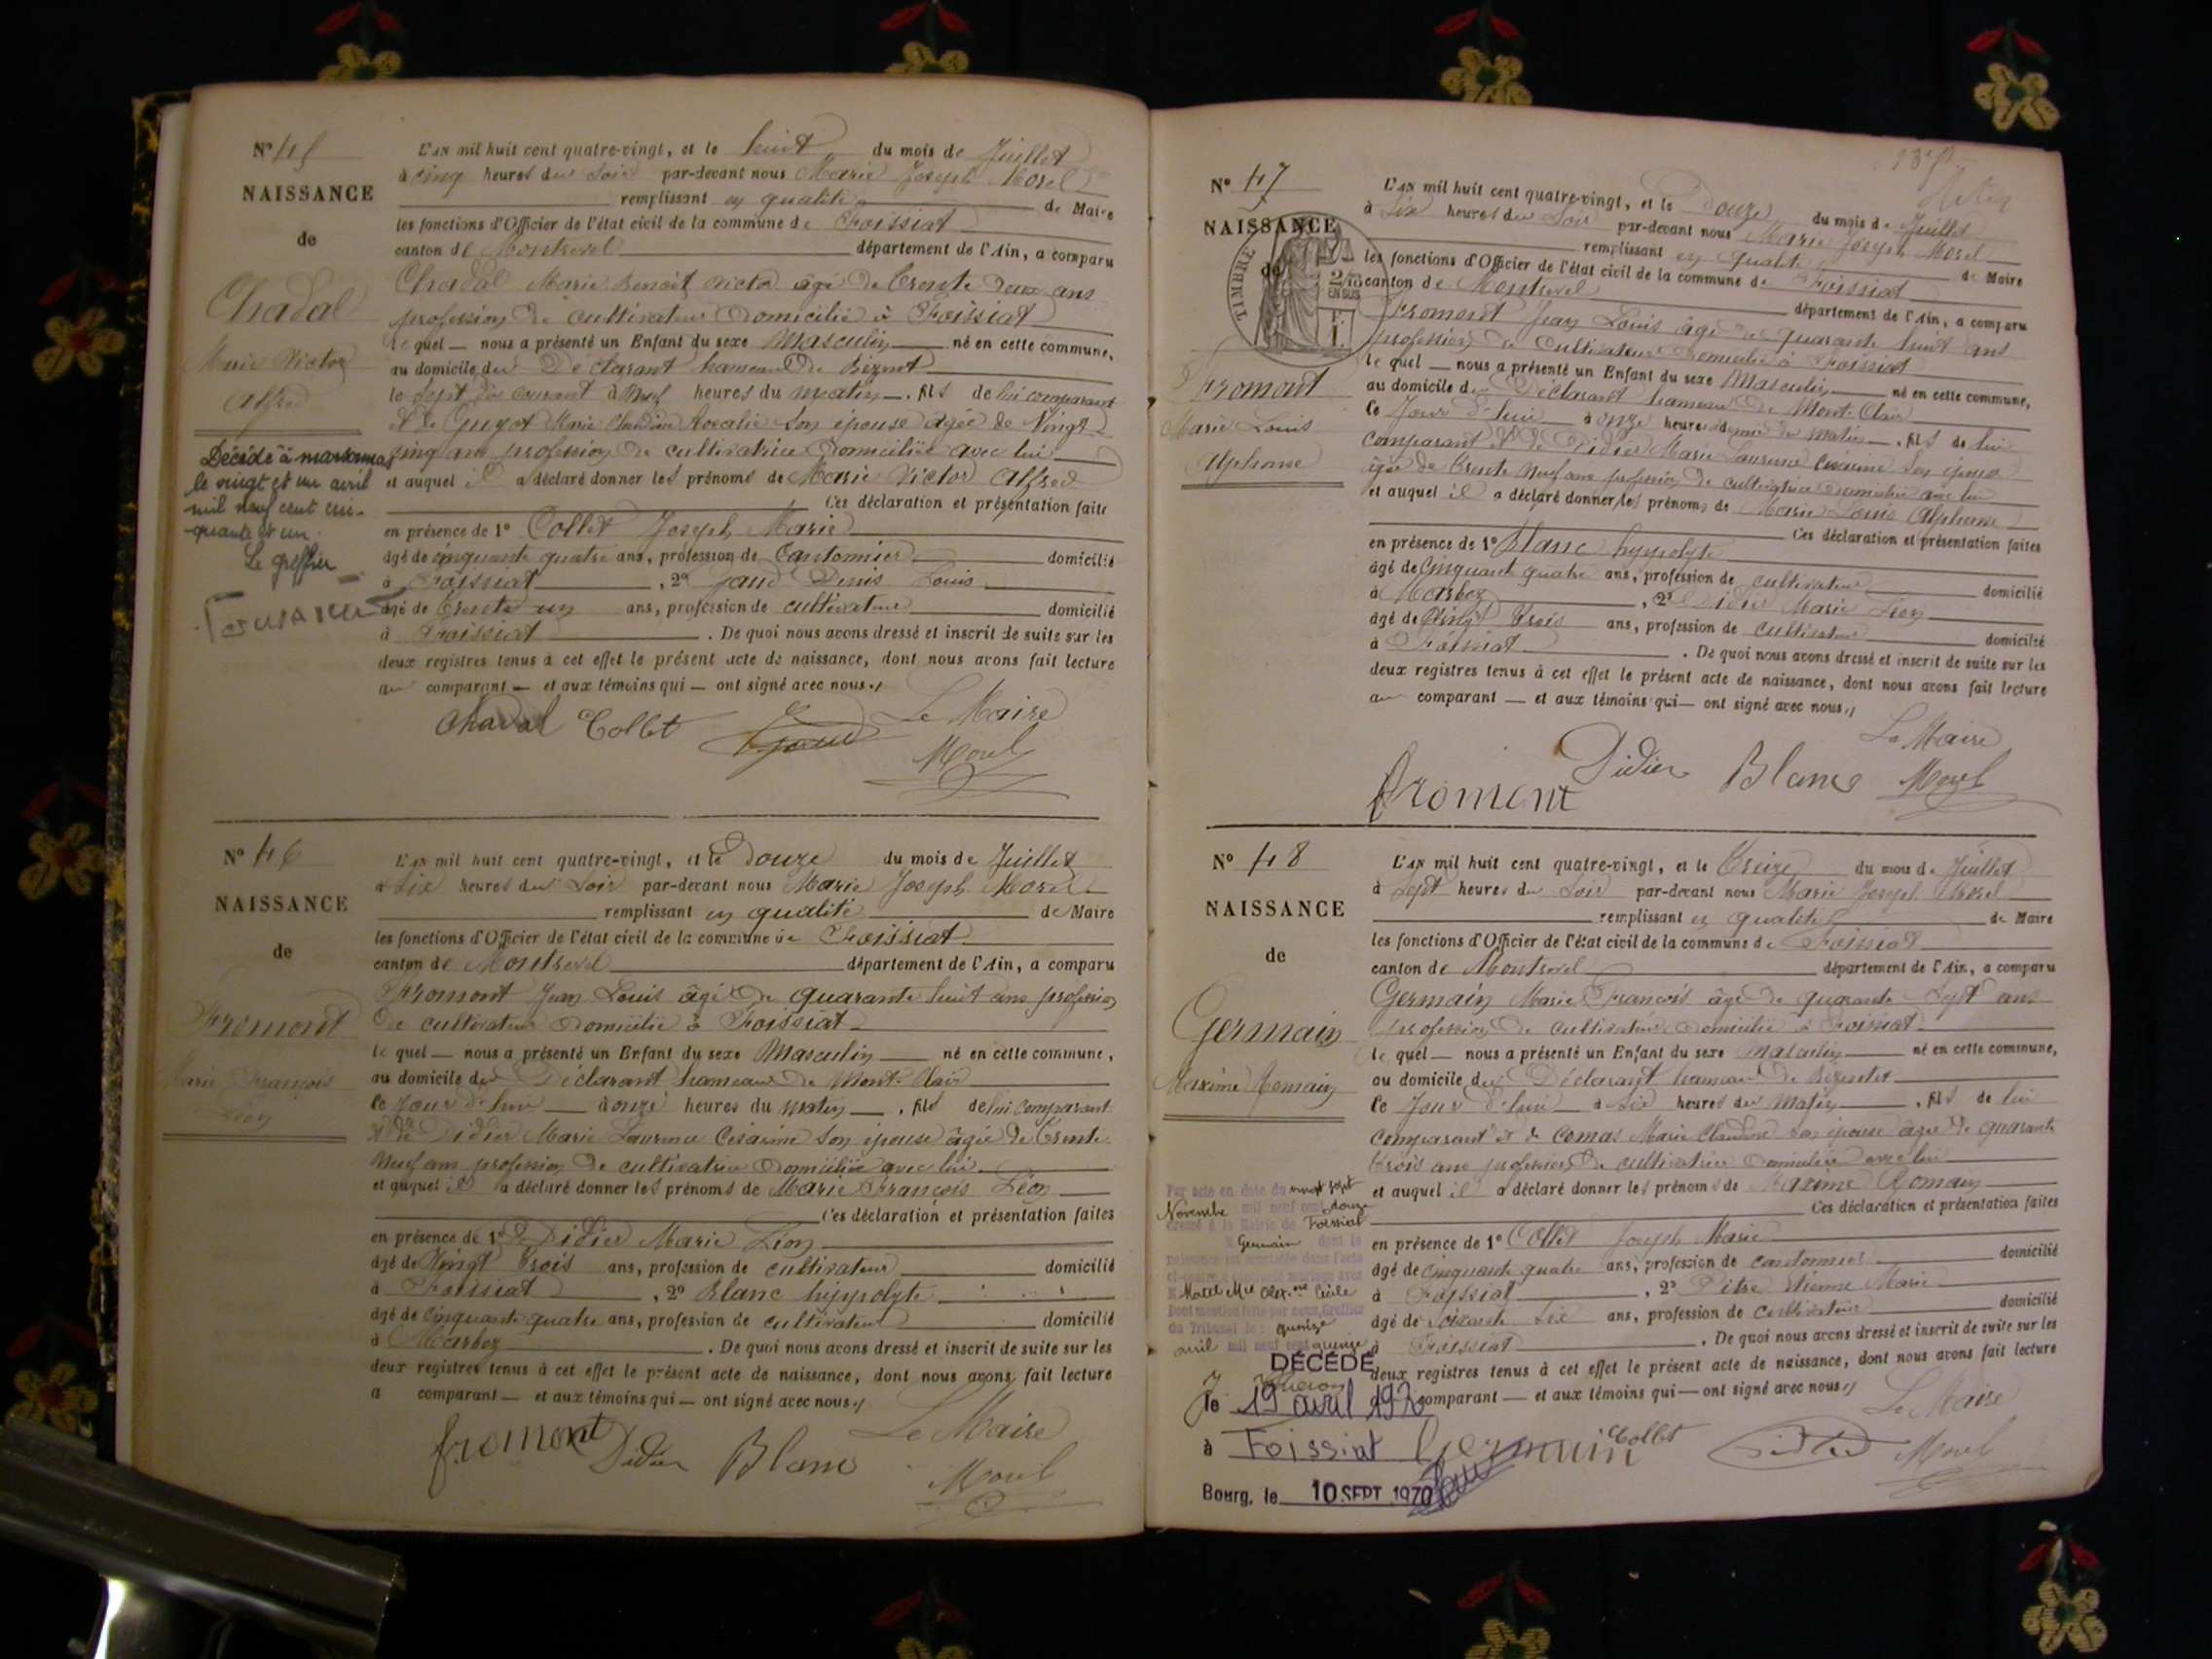 N° 45
NAISSANCE
de
Chadal
Marie Victor
Alfred
Décédé à
le vingt et un avril
mil neuf cent cin-
quante et un.
Le greffier
L'AN mil huit cent quatre-vingt, et le huit du mois de Juillet
à cinq heures du soir par-devant nous Marie Joseph Morel
remplissant en qualité de Maire
les fonctions d'Officier de l'état civil de la commune de Foissiat
canton de Montrevel département de l'Ain, a comparu
Chadal Marie Benoit Victor âgé de trente deux ans
profession de cultivateur domicilié à Foissiat
lequel — nous a présenté un Enfant du sexe Masculin né en cette commune,
au domicile du Déclarant hameau de
le sept du courant à neuf heures du matin — . fils de lui comparant
et de Guyot Marie Claudine Rosalie son épouse âgée de Vingt
cinq ans profession de cultivatrice domiciliée avec lui
et auquel il a déclaré donner les prénoms de Marie Victor Alfred
Ces déclaration et présentation faite
en présence de 1° Collet Joseph Marie
âgé de cinquante quatre ans, profession de Cantonnier domicilié
à Foissiat , 2° Jaud Denis Louis
âgé de trente un ans, profession de cultivateur domicilié
à Foissiat . De quoi nous avons dressé et inscrit de suite sur les
deux registres tenus à cet effet le présent acte de naissance, dont nous avons fait lecture
au comparant — et aux témoins qui — ont signé avec nous.
Chadal Collet Jaud Le Maire
Morel
N° 46
NAISSANCE
de
Fromont
Marie François
Léon
L'AN mil huit cent quatre-vingt, et le Douze du mois de Juillet
à six heures du soir par-devant nous Marie Joseph Morel
remplissant en qualité de Maire
les fonctions d'Officier de l'état civil de la commune de Foissiat
canton de Montrevel département de l'Ain, a comparu
Fromont Jean Louis âgé de quarante huit ans profession
de cultivateur domicilié à Foissiat
lequel — nous a présenté un Enfant du sexe Masculin né en cette commune,
au domicile du Déclarant hameau de Mont-Clair
le Jour d'hui — à onze heures du matin — . fils de lui comparant
et de Didier Marie Laurence Césarine son épouse âgée de trente
neuf ans profession de cultivatrice domiciliée avec lui
et auquel il a déclaré donner les prénoms de Marie François Léon
Ces déclaration et présentation faites
en présence de 1° Didier Marie Léon
âgé de Vingt trois ans, profession de cultivateur domicilié
à Foissiat , 2° Blanc hyppolyte
âgé de cinquante quatre ans, profession de cultivateur domicilié
à Marboz . De quoi nous avons dressé et inscrit de suite sur les
deux registres tenus à cet effet le présent acte de naissance, dont nous avons fait lecture
a comparant — et aux témoins qui — ont signé avec nous.
fromont Didier Blanc Le Maire
Morel
N° 47
NAISSANCE
de
TIMBRE
2/10
EN SUS
Fromont
Marie Louis
Alphonse
L'AN mil huit cent quatre-vingt, et le Douze du mois de Juillet
à six heures du soir par-devant nous Marie Joseph Morel
remplissant en qualité de Maire
les fonctions d'Officier de l'état civil de la commune de Foissiat
canton de Montrevel département de l'Ain, a comparu
Fromont Jean Louis âgé de quarante huit ans
profession de cultivateur domicilié à Foissiat
lequel — nous a présenté un Enfant du sexe Masculin né en cette commune,
au domicile du Déclarant hameau de Mont-Clair
le Jour d'hui à onze heures demie du matin — . fils de lui
comparant et de Didier Marie Laurence Césarine son épouse
âgée de trente neuf ans profession de cultivatrice domiciliée avec lui
et auquel il a déclaré donner les prénoms de Marie Louis Alphonse
Ces déclaration et présentation faites
en présence de 1° Blanc hyppolyte
âgé de cinquante quatre ans, profession de cultivateur domicilié
à Marboz , 2° Didier Marie Léon
âgé de Vingt trois ans, profession de cultivateur domicilié
à Foissiat . De quoi nous avons dressé et inscrit de suite sur les
deux registres tenus à cet effet le présent acte de naissance, dont nous avons fait lecture
au comparant — et aux témoins qui — ont signé avec nous.
Le Maire
froment Didier Blanc Morel
N° 48
NAISSANCE
de
Germain
Maxime Romain
Par acte en date du vingt sept
Novembre mil neuf cent douze
dressé à la Mairie de Foissiat
Germain dont la
naissance est constatée dans l'acte
Morel Mie Cécile
Dont mention faite par nous, Greffier
du Tribunal le quinze
avril mil neuf cent quinze
DÉCÉDÉ
le 19 avril
à Foissiat
Bourg, le 10 SEPT 1970
L'AN mil huit cent quatre-vingt, et le treize du mois de Juillet
à sept heures du soir par-devant nous Marie Joseph Morel
remplissant en qualité de Maire
les fonctions d'Officier de l'état civil de la commune de Foissiat
canton de Montrevel département de l'Ain, a comparu
Germain Marie François âgé de quarante sept ans
profession de cultivateur domicilié à Foissiat
lequel — nous a présenté un Enfant du sexe Masculin né en cette commune,
au domicile du Déclarant hameau de
le Jour d'hui à six heures du matin . fils de lui
comparant et de Comas Marie Claudine son épouse âgée de quarante
trois ans profession de cultivatrice domiciliée avec lui
et auquel il a déclaré donner les prénoms de Maxime Romain
Ces déclaration et présentation faites
en présence de 1° Collet Joseph Marie
âgé de cinquante quatre ans, profession de cantonnier domicilié
à Foissiat , 2° Pitre Etienne Marie
âgé de soixante six ans, profession de cultivateur domicilié
à Foissiat . De quoi nous avons dressé et inscrit de suite sur les
deux registres tenus à cet effet le présent acte de naissance, dont nous avons fait lecture
comparant — et aux témoins qui — ont signé avec nous.
Le Maire
Germain Collet Morel